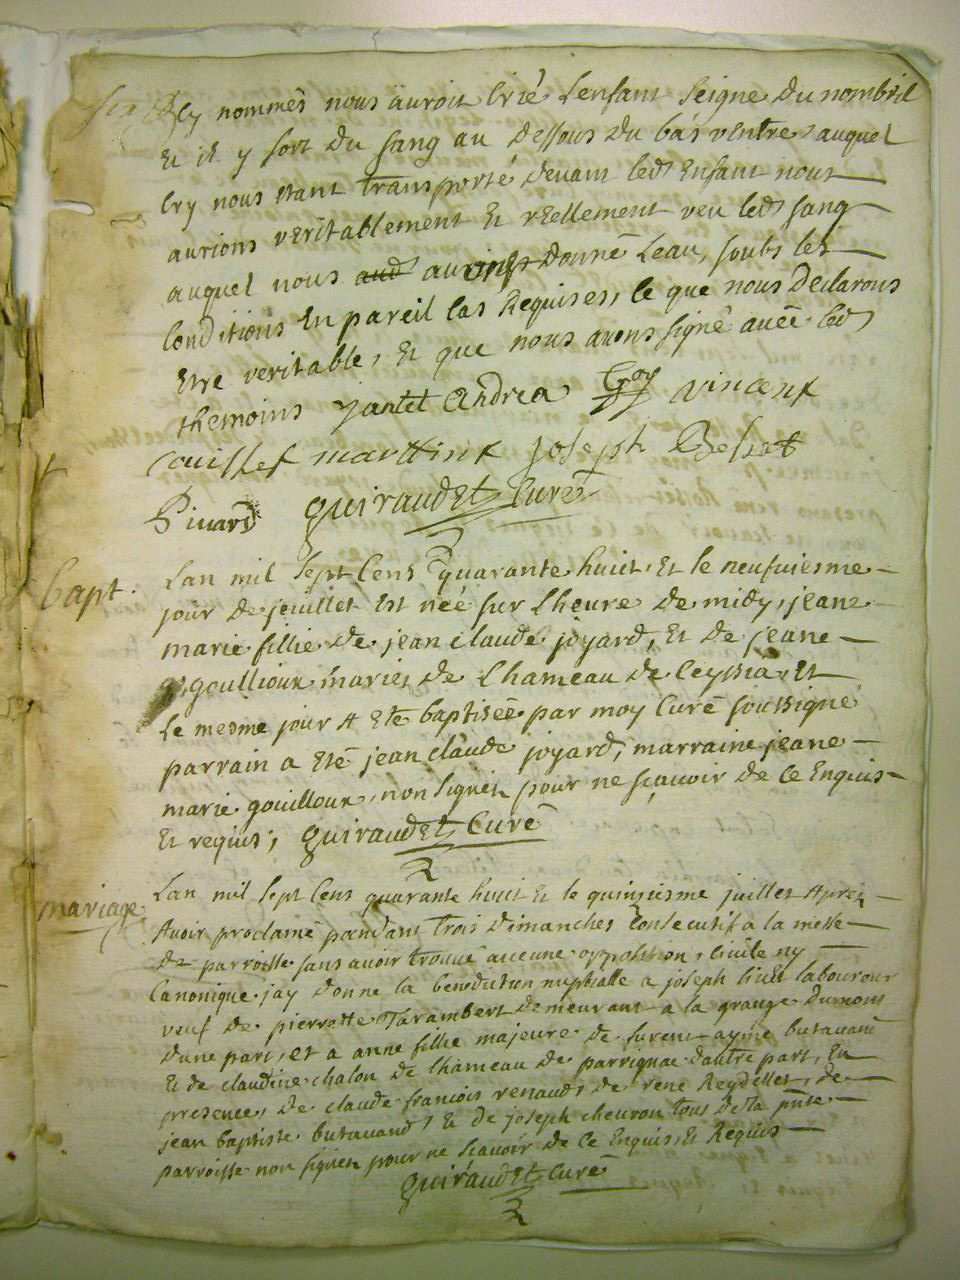 Cy nommés nous auroit crié lenfant seigne du nombril
Et il y sort du sang au dessous du bas ventre, auquel
Cry nous étant transporté devant led Enfant nous
aurions veritablement Et reellement veu led sang
auquel nous aurions donné Leau, soubs les
Conditions En pareil Cas Requises, ce que nous Declarons
Etre veritable, Et que nous avons signé avec led
themoins jantet Andrea Goy vincent
marttint Joseph Belset
Pivard Guiraudet Curé
bapt.
Lan mil sept Cens quarante huict Et le neufuiesme
jour de jeuillet Est née sur Lheure de midy, jeane
marie fillie de jean claude joyard, Et de jeane
gouillioux mariés de Lhameau de Ceyssia, Et
Le mesme jour A Eté baptiséé par moy Curé soussigné
parrain a Eté jean claude joyard, marraine jeane
marie gouilloux, non signés pour ne sçauoir de ce Enquis
Et requis; Guiraudet Curé
mariage
Lan mil sept Cens quarante huict Et le quinsiesme juillet Aprez
Auoir proclamé pandant trois dimanches Consecutif a la messe
de parroisse sans avoir trouué aucune opposition, ciuile ny
Canonique jay donné la benediction nuptialle a joseph labourour
veuf de pierrette Tarambert demeurant a la grange dumont
dune part, et a anne fillie majeure de furent aymé butauand
Et de claudine chalon de Lhameau de parrignac dautre part, En
presence, de claude françois renaud, de rené Reydellet, de
jean baptiste butauand, Et de joseph cheuron tous de la pñte
parroisse non signés pour ne sçauoir de Ce Enquis, Et Requis
Guiraudet Curé